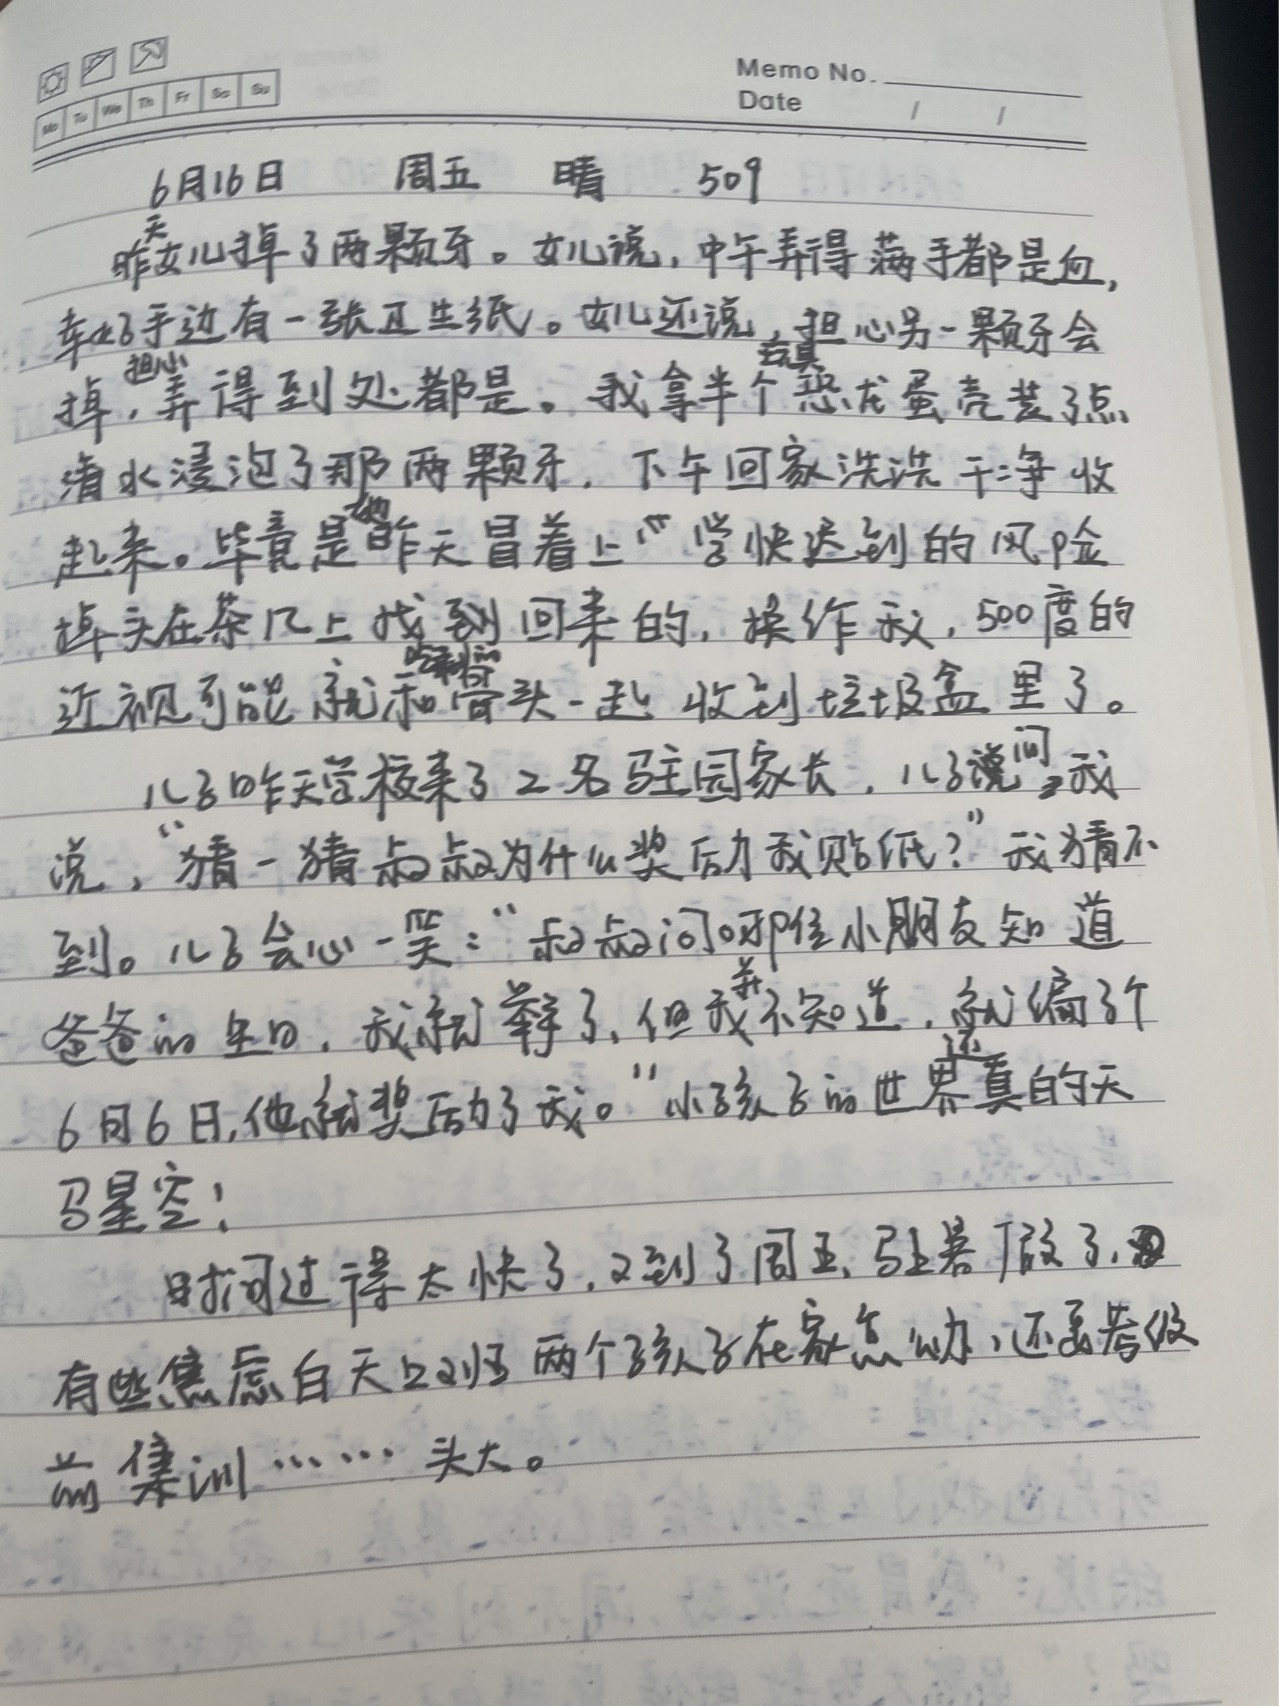 Memo No.
Date / /
Mo Tu We Th Fr Sa Su
6月16日 周五 晴 509
昨天女儿掉了两颗牙。女儿说，中午弄得满手都是血，
幸好手边有一张卫生纸。女儿还说，担心另一颗牙会
掉，担心弄得到处都是。我拿半个玩具恐龙蛋壳装了点
清水浸泡了那两颗牙，下午回家洗洗干净收
起来。毕竟是她昨天冒着上学快迟到的风险
掉头在茶几上找到回来的，换作我，500度的
近视可能就和吃剩的骨头一起收到垃圾盒里了。
儿子昨天学校来了2名驻园家长，儿子问我
说，“猜一猜叔叔为什么奖励我贴纸？”我猜不
到。儿子会心一笑：“叔叔问哪位小朋友知道
爸爸的生日，我就举了，但我并不知道，就编了个
6月6日，他就奖励了我。”小孩子的世界还真的天
马星空！
时间过得太快了，又到了周五，马上暑假了，
有些焦虑白天上班两个孩子在家怎么办，还要考级
前集训……头大。